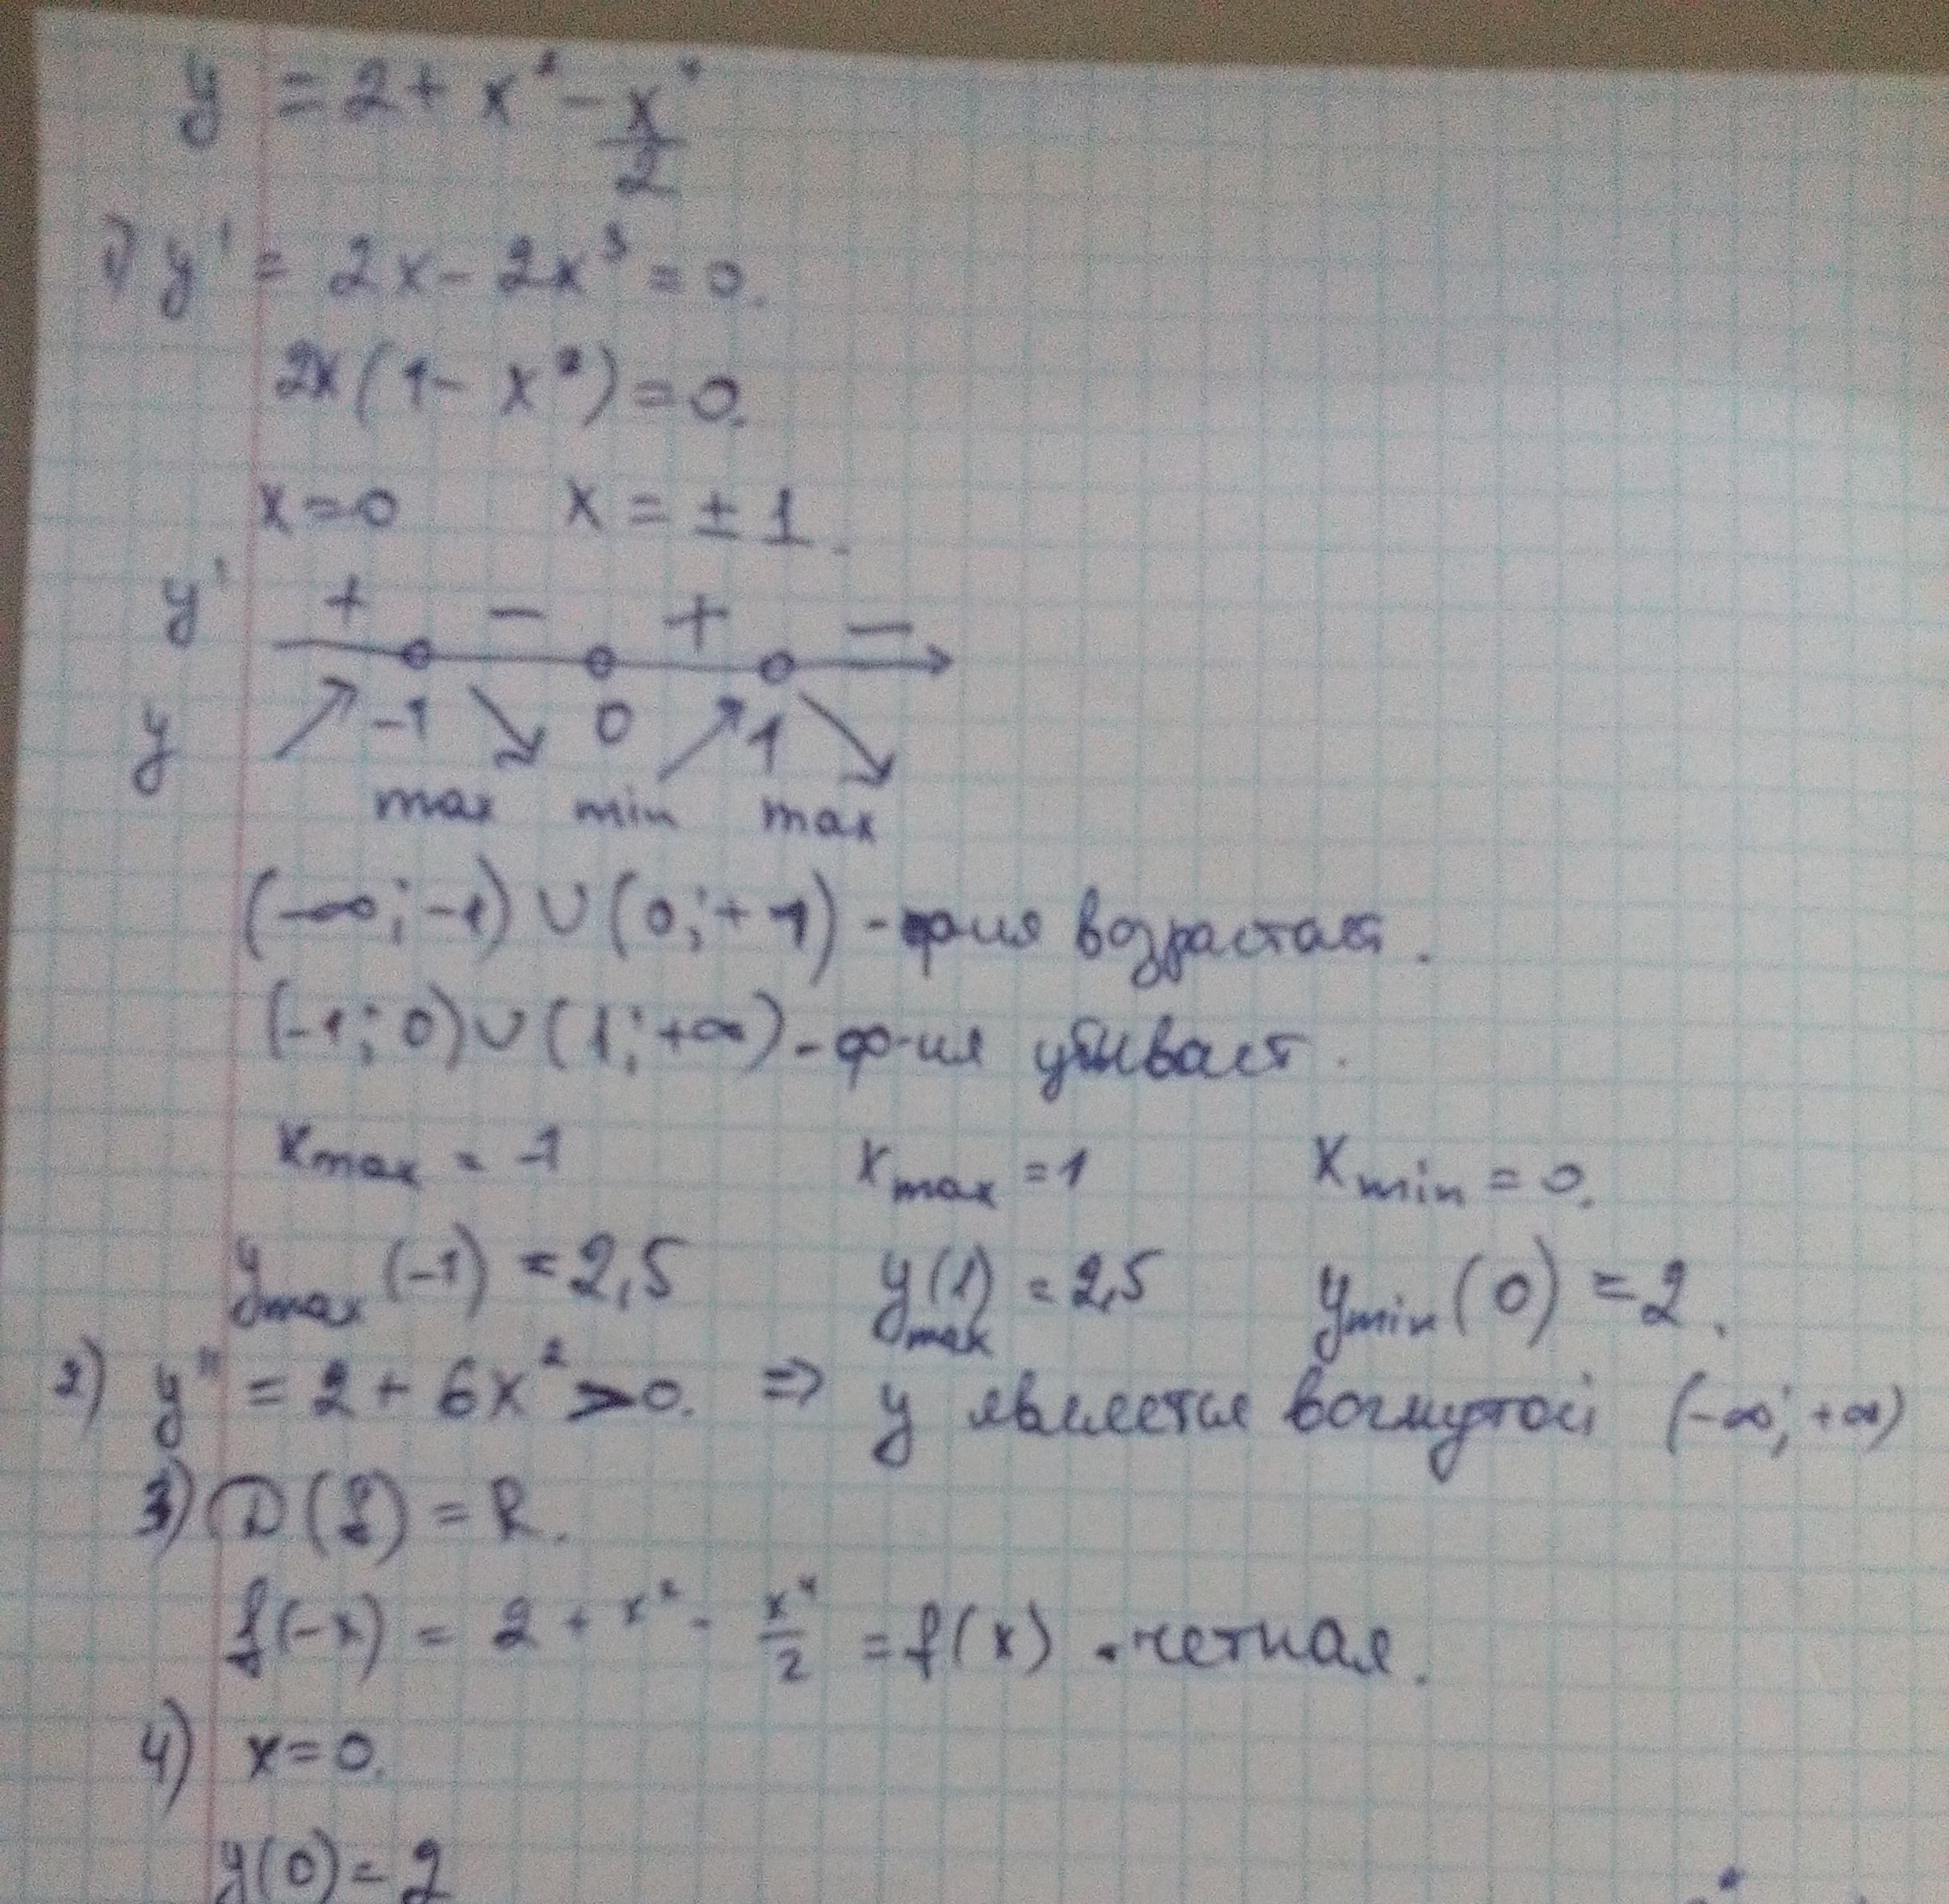 y = 2 + x² - x⁴/2
1) y' = 2x - 2x³ = 0.
2x(1 - x²) = 0.
x = 0 x = ± 1.
y' + - + -
-1 0 1
y max min max
(-∞; -1) ∪ (0; +1) - ф-ия возрастает.
(-1; 0) ∪ (1; +∞) - ф-ия убывает.
x max = -1 x max = 1 x min = 0.
y max (-1) = 2,5 y max (1) = 2,5 y min (0) = 2.
2) y'' = 2 + 6x² > 0. ⇒ y является вогнутой (-∞; +∞)
3) D(f) = R.
f(-x) = 2 + x² - x⁴/2 = f(x) - четная.
4) x = 0.
y(0) = 2